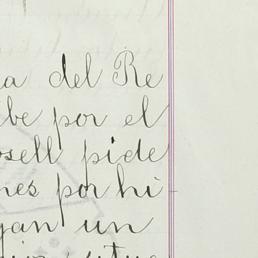 a del Re
be por el
sell pide
nes por hi
gan un